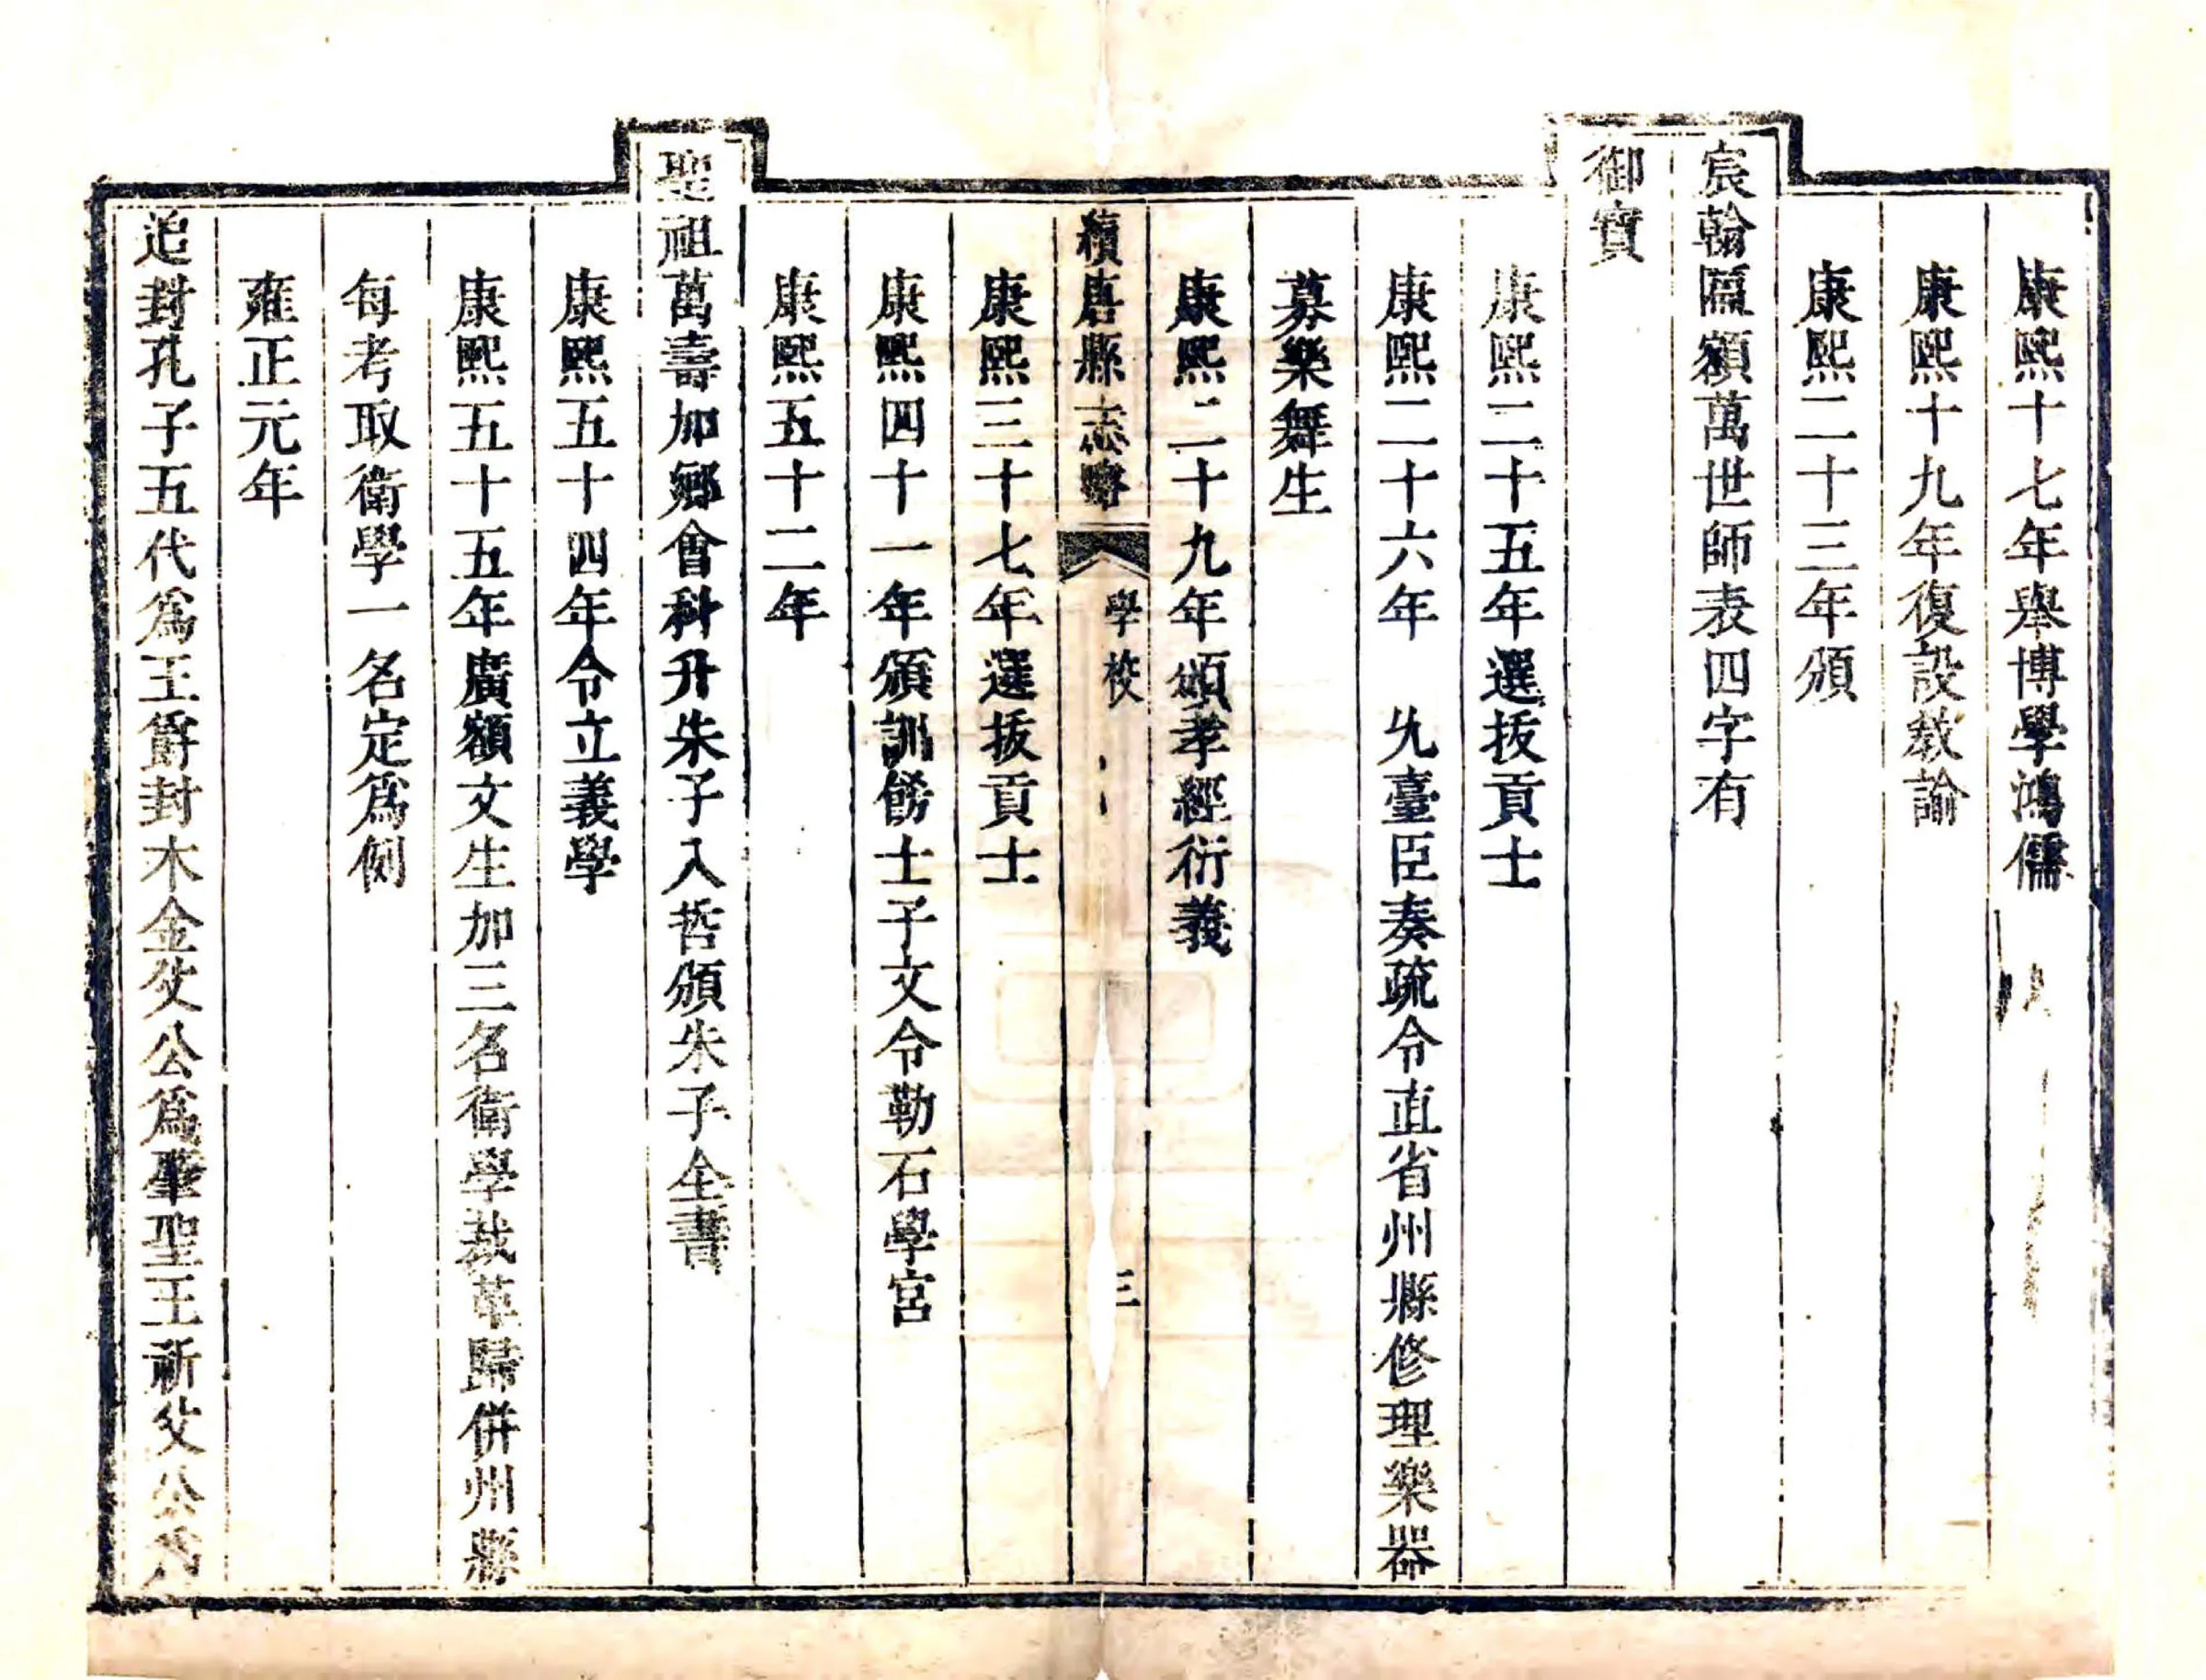 康熙十七年舉博學鴻儒
康熙十九年復設教諭
康熙二十三年頒
宸翰匾額萬世師表四字有
御寶
康熙二十五年選拔貢士
康熙二十六年　允臺臣奏疏令直省州縣修理樂器
募樂舞生
康熙二十九年頒孝經衍義
續唐縣志略　學校　三
康熙三十七年選拔貢士
康熙四十一年頒訓飭士子文令勒石學宮
康熙五十二年
聖祖萬壽加鄉會科升朱子入哲頒朱子全書
康熙五十四年令立義學
康熙五十五年廣額文生加三名衛學裁革歸併州縣
每考取衛學一名定爲例
雍正元年
追封孔子五代爲王爵封木金父公爲肇聖王祈父公爲